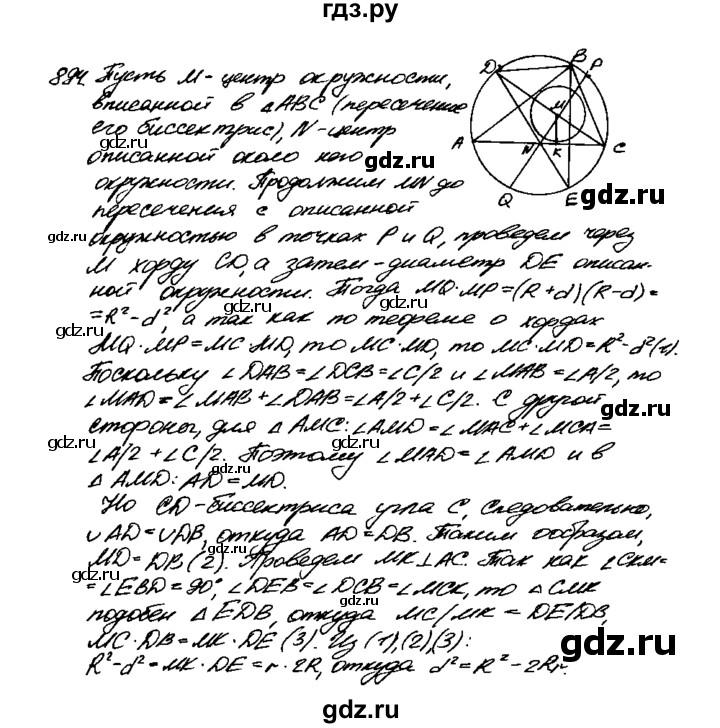 гдз.ру
894 Пусть M - центр окружности,
вписанной в △ABC (пересечение
его биссектрис), N - центр
описанной около него
окружности. Продолжим MN до
пересечения с описанной
окружностью в точках P и Q, проведем через
M хорду CD, а затем - диаметр DE описан-
ной окружности. Тогда MQ·MP=(R+d)(R-d)=
=R²-d², а так как по теореме о хордах
MQ·MP=MC·MD, то MC·MD, то MC·MD=R²-d²(1).
Поскольку ∠DAB=∠DCB=∠C/2 и ∠MAB=∠A/2, то
∠MAD=∠MAB+∠DAB=∠A/2+∠C/2. С другой
стороны, для △AMC: ∠AMD=∠MAC+∠MCA=
∠A/2+∠C/2. Поэтому ∠MAD=∠AMD и в
△AMD: AD=MD.
Но CD-биссектриса угла C, следовательно,
∪AD=∪DB, откуда AD=DB. Таким ообразом,
MD=DB (2). Проведем MK⊥AC. Так как ∠CKM=
=∠EBD=90°, ∠DEB=∠DCB=∠MCK, то △CMK
подобен △EDB, откуда MC/MK=DE/DB,
MC·DB=MK·DE (3). Из (1),(2),(3):
R²-d²=MK·DE=r·2R, откуда d²=R²-2Rr.
D
B
P
M
A
N
K
C
Q
E
gdz.ru
gdz.ru
gdz.ru
gdz.ru
gdz.ru
gdz.ru
gdz.ru
gdz.ru
gdz.ru
gdz.ru
gdz.ru
gdz.ru